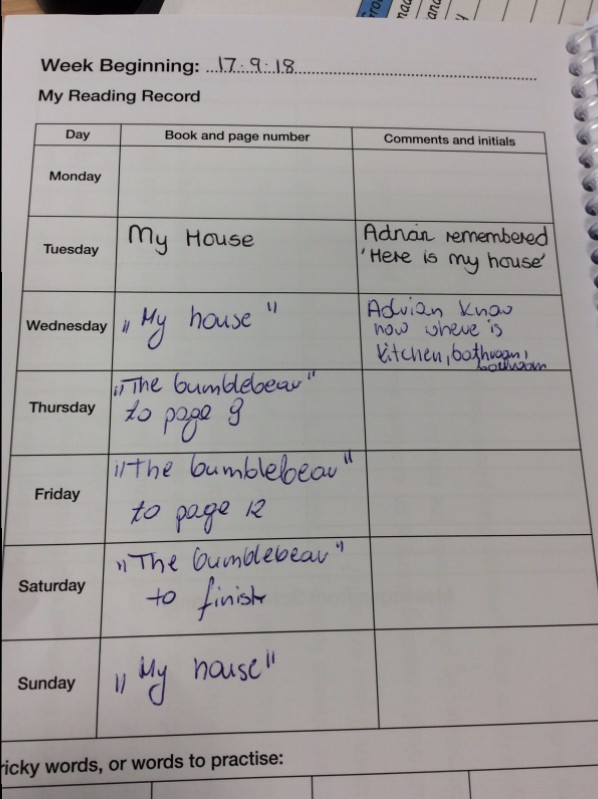 Week Beginning: 17.9.18
My Reading Record
Day Book and page number Comments and initials
Monday
Tuesday My House Adrian remembered
'Here is my house'
Wednesday „My house" Adrian know
now where is
kitchen, bathroom,
„The bumblebear"
Thursday to page 9
„The bumblebear"
Friday to page 12
„The bumblebear"
Saturday to finish
Sunday „My house"
ricky words, or words to practise: